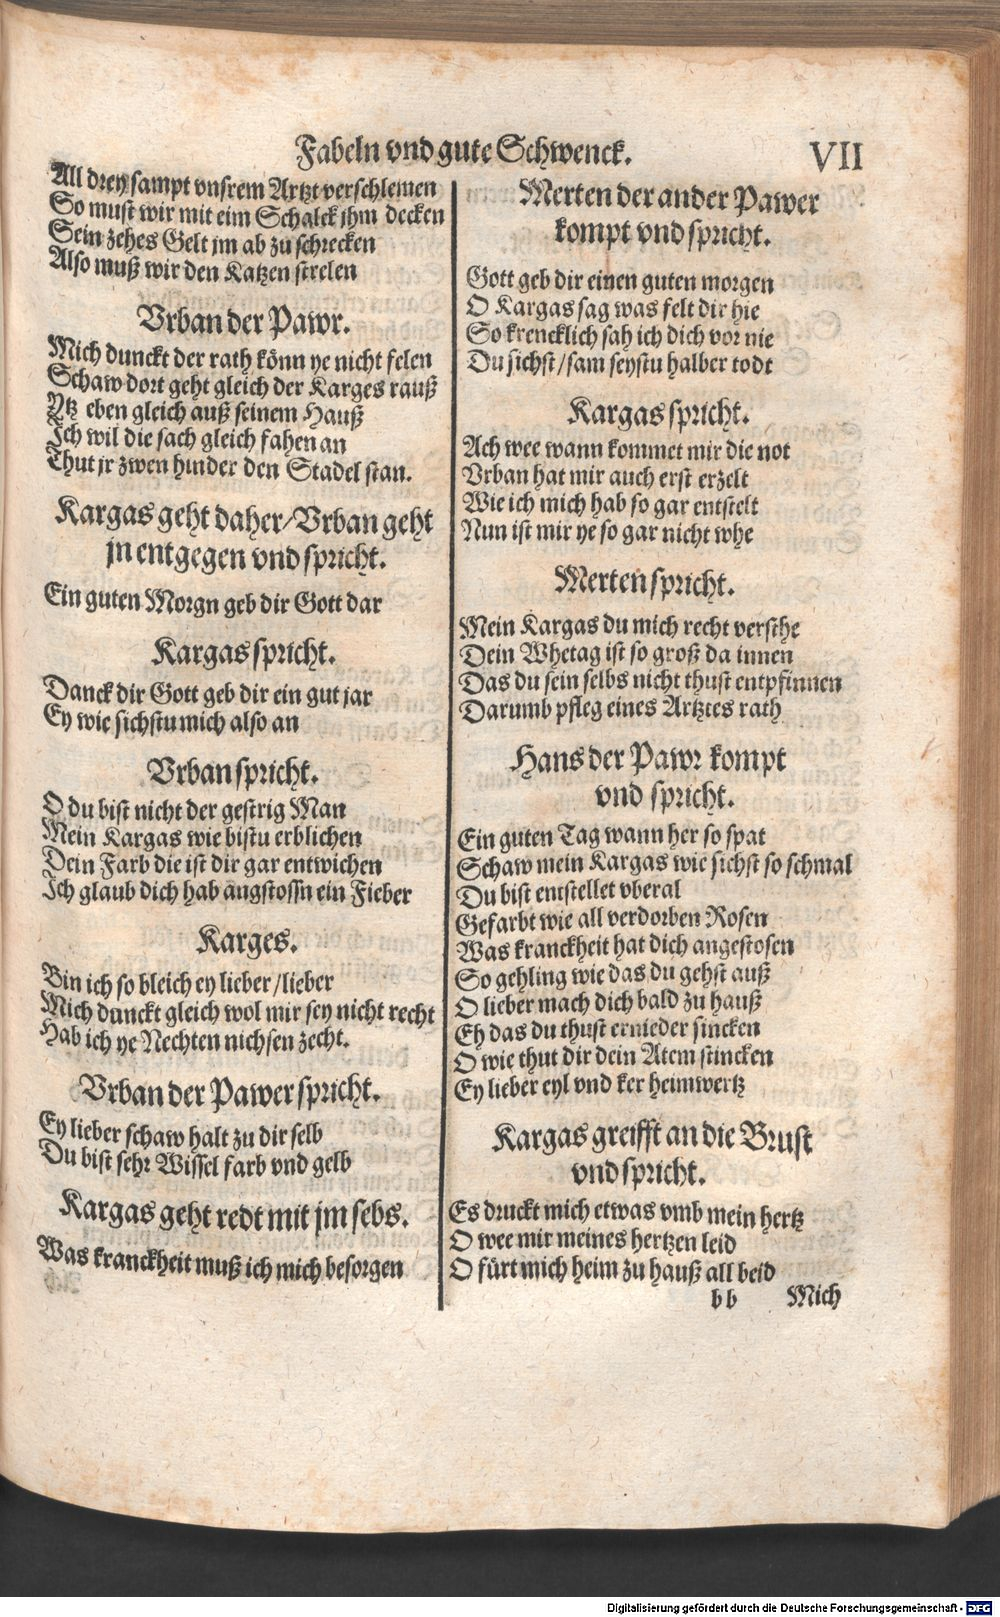 Fabeln vnd gute Schwenck. VII
All drey sampt vnsrem Artzt verschlemen
So must wir mit eim Schalck ihm decken
Sein zehes Gelt jm ab zu schrecken
Also muß wir den Katzen strelen
Vrban der Pawr.
Mich dunckt der rath könn ye nicht felen
Schaw dort geht gleich der Karges rauß
Ytz eben gleich auß seinem Hauß
Ich wil die sach gleich fahen an
Thut jr zwen hinder den Stadel stan.
Kargas geht daher/Vrban geht
jn entgegen vnd spricht.
Ein guten Morgn geb dir Gott dar
Kargas spricht.
Danck dir Gott geb dir ein gut jar
Ey wie sichstu mich also an
Vrban spricht.
O du bist nicht der gestrig Man
Mein Kargas wie bistu erblichen
Dein Farb die ist dir gar entwichen
Ich glaub dich hab angstossn ein Fieber
Karges.
Bin ich so bleich ey lieber/lieber
Mich dunckt gleich wol mir sey nicht recht
Hab ich ye Nechten nichsen zecht.
Vrban der Pawer spricht.
Ey lieber schaw halt zu dir selb
Du bist sehr Wissel farb vnd gelb
Kargas geht redt mit jm sebs.
Was kranckheit muß ich mich besorgen
Merten der ander Pawer
kompt vnd spricht.
Gott geb dir einen guten morgen
O Kargas sag was felt dir hie
So krencklich sah ich dich vor nie
Du sichst/sam seystu halber todt
Kargas spricht.
Ach wee wann kommet mir die not
Vrban hat mir auch erst erzelt
Wie ich mich hab so gar entstelt
Nun ist mir ye so gar nicht whe
Merten spricht.
Mein Kargas du mich recht versthe
Dein Whetag ist so groß da innen
Das du sein selbs nicht thust entpfinnen
Darumb pfleg eines Artztes rath
Hans der Pawr kompt
vnd spricht.
Ein guten Tag wann her so spat
Schaw mein Kargas wie sichst so schmal
Du bist entstellet vberal
Gefarbt wie all verdorben Rosen
Was kranckheit hat dich angestosen
So gehling wie das du gehst auß
O lieber mach dich bald zu hauß
Eh das du thust ernieder sincken
O wie thut dir dein Atem stincken
Ey lieber eyl vnd ker heimwertz
Kargas greifft an die Brust
vnd spricht.
Es druckt mich etwas vmb mein hertz
O wee mir meines hertzen leid
O fürt mich heim zu hauß all beid
bb Mich
Digitalisierung gefördert durch die Deutsche Forschungsgemeinschaft - DFG